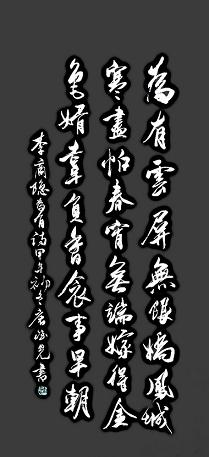 為有雲屏無限嬌鳳城
寒盡怕春宵無端嫁得金
龜婿辜負香衾事早朝
李商隱為有詩甲午書